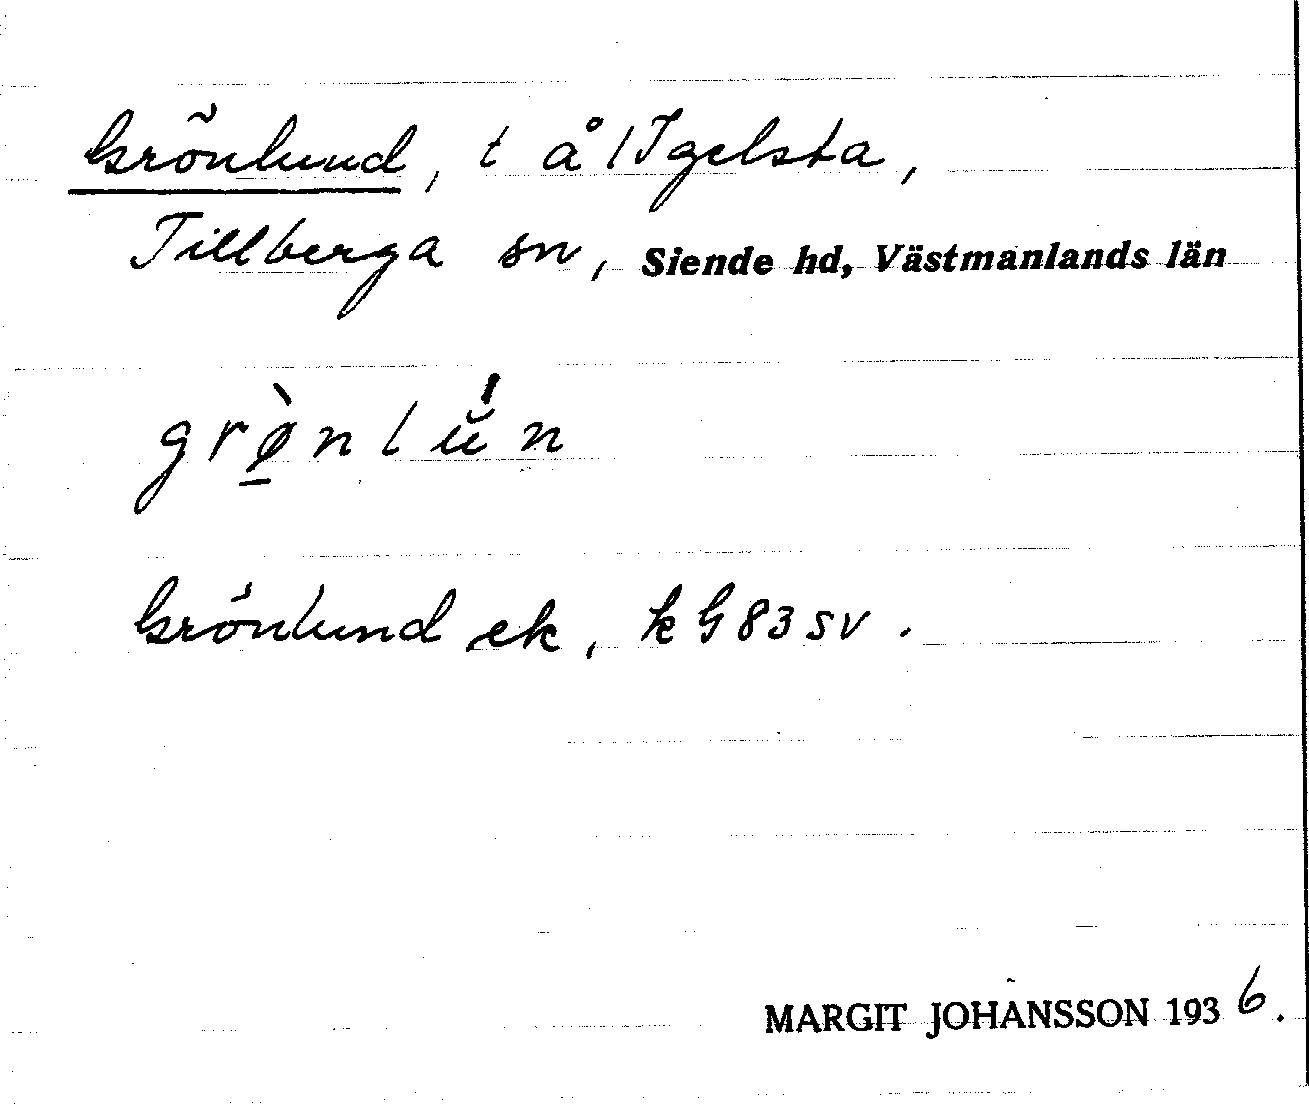 Grönlund, t å 1 Igelsta,
Tillberga sn, Siende hd, Västmanlands län
grø̀nlŭ́n
Grönlund ek, k G 83 SV.
MARGIT JOHANSSON 1936.